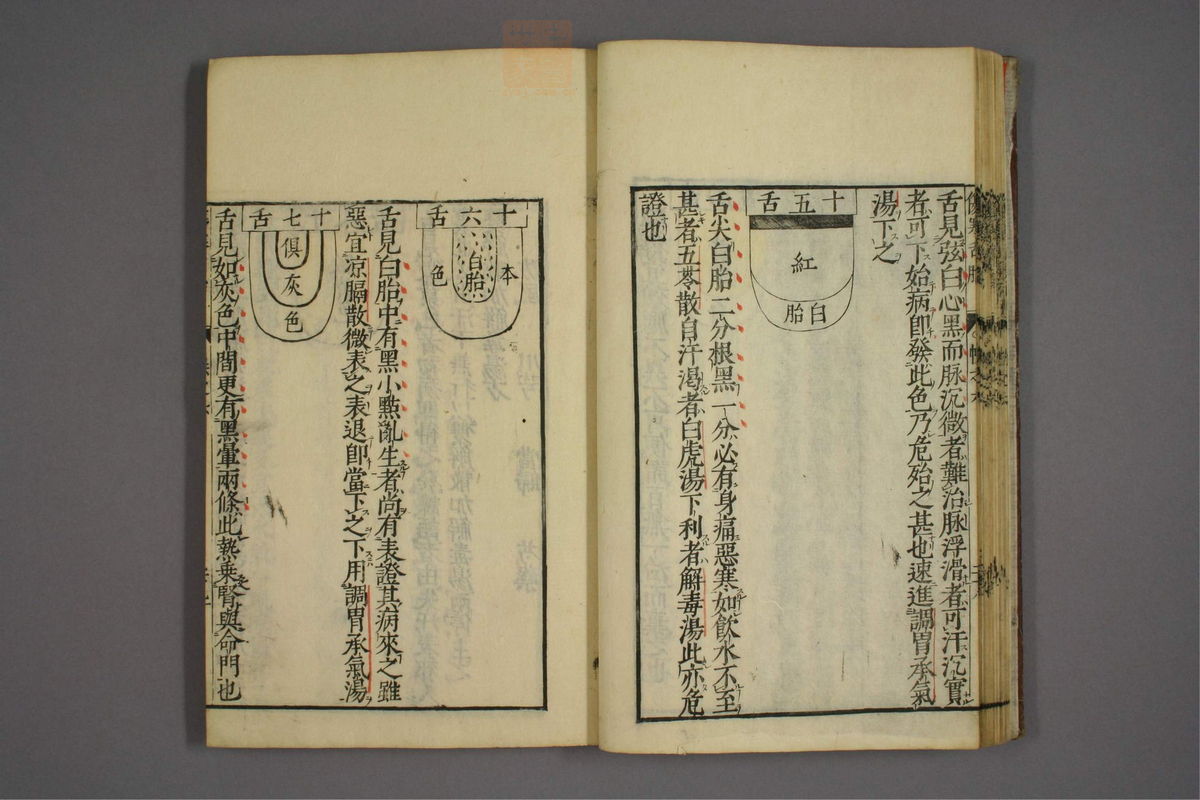 舌見弦白心黑而脉沉微者難治脉浮滑者可汗沉實
者可下始病即發此色乃危殆之甚也速進調胃承氣
湯下之
十五舌
紅
白胎
舌尖白胎二分根黑一分必有身痛惡寒如飲水不至
甚者五苓散自汗渴者白虎湯下利者解毒湯此亦危
證也
十六舌
本色
白胎
舌見白胎中有黑小點亂生者尚有表證其病來之雖
惡宜凉膈散微表之表退即當下之下用調胃承氣湯
十七舌
俱灰色
舌見如灰色中間更有黑暈兩條此熱乗腎與命門也